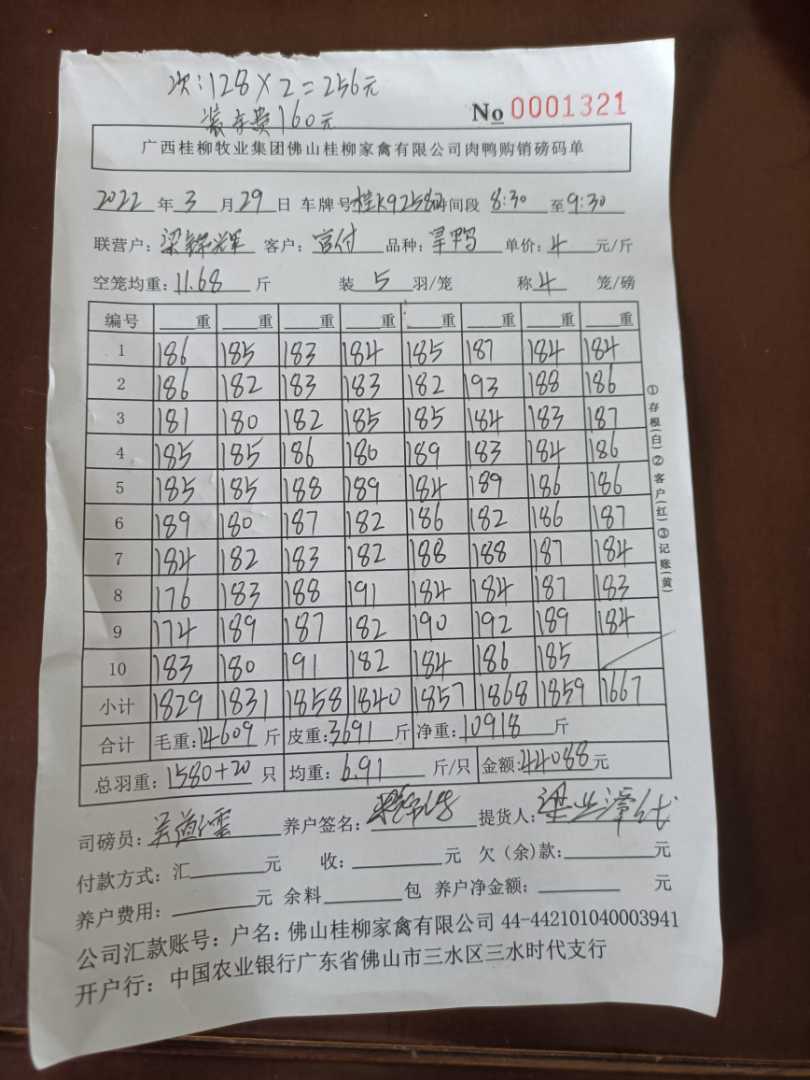 次:128×2=256元
装车费160元
No 0001321
广西桂柳牧业集团佛山桂柳家禽有限公司肉鸭购销磅码单
2022年3月29日 车牌号桂K92584时间段 8:30至9:30
联营户:梁锦辉 客户:富付 品种:旱鸭 单价:4元/斤
空笼均重:11.68斤 装5羽/笼 称4笼/磅
编号 重 重 重 重 重 重 重 重
1 186 185 183 184 185 187 184 184
2 186 182 183 183 182 193 188 186
3 181 180 182 185 185 184 183 187
4 185 185 186 180 189 183 184 186
5 185 185 188 189 184 189 186 186
6 189 180 187 182 186 182 186 187
7 184 182 183 182 188 188 187 184
8 176 183 188 191 184 184 187 183
9 174 189 187 182 190 192 189 184
10 183 180 191 182 184 186 185
小计 1829 1831 1858 1840 1857 1868 1859 1667
合计 毛重:14609斤 皮重:3691斤 净重:10918斤
总羽重:1580+20只 均重:6.91斤/只 金额:44088元
司磅员: 养户签名: 提货人:梁业泽代
付款方式:汇 元 收: 元 欠(余)款: 元
养户费用: 元 余料 包 养户净金额: 元
公司汇款账号:户名:佛山桂柳家禽有限公司 44-442101040003941
开户行:中国农业银行广东省佛山市三水区三水时代支行
①存根(白)②客户(红)③记账(黄)